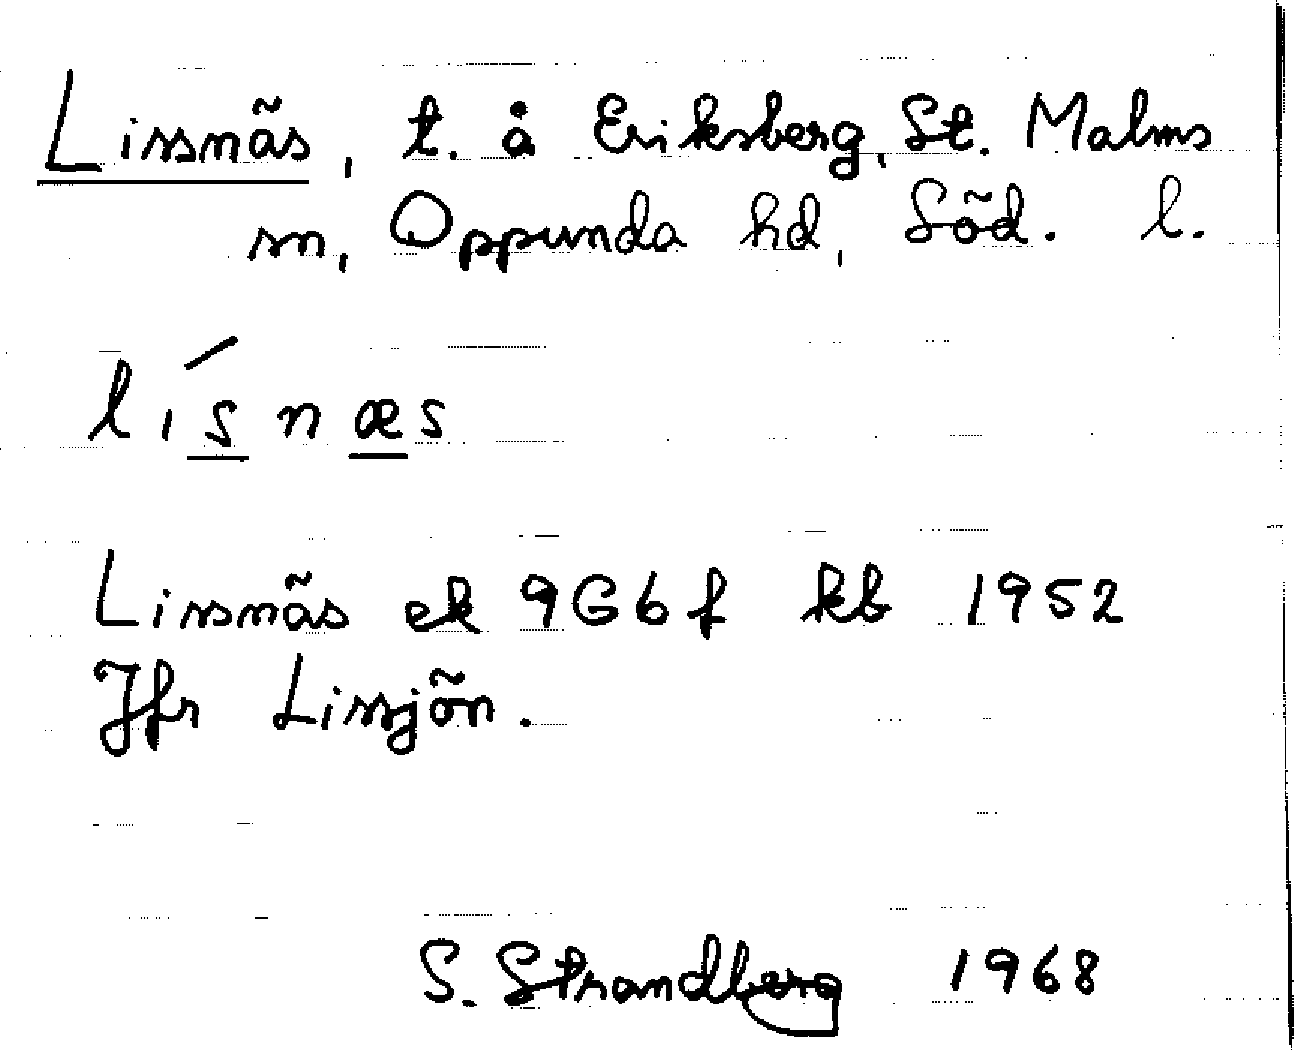 Lissnäs, t. å Eriksberg, St. Malms
sn, Oppunda hd, Söd. l.
lísnæs
Lissnäs ek 9G6f kb 1952
Jfr Lissjön.
S. Strandberg 1968